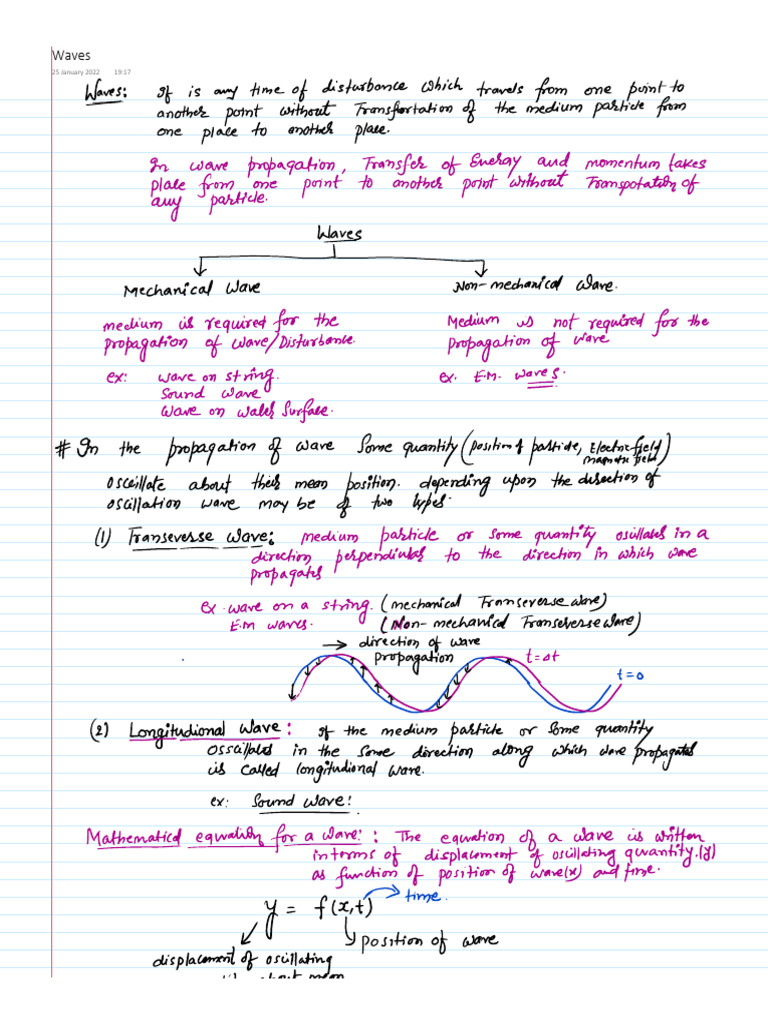 Waves
25 January 2022 19:17
Waves: It is any time of disturbance which travels from one point to
another point without Transfortation of the medium particle from
one place to another place.
In wave propagation, Transfer of Energy and momentum takes
place from one point to another point without Transpotation of
any particle.
Waves
Mechanical Wave Non-mechanical Wave.
medium is required for the Medium is not required for the
propagation of wave/Disturbance. propagation of wave
ex: wave on string. ex. E.M. waves.
Sound wave
Wave on water Surface.
# In the propagation of wave Some quantity (position of particle, Electric field)
magnetic field
oscillate about their mean position. depending upon the direction of
oscillation wave may be of two types.
(1) Transeverse wave: medium particle or some quantity oscillates in a
direction perpendicular to the direction in which wave
propagates
ex. wave on a string. (mechanical Transeverse wave)
E.m waves. (Non-mechanical Transeverse wave)
→ direction of wave
propagation t=Δt
t=0
(2) Longitudional wave: If the medium particle or Some quantity
osscillates in the same direction along which wave propagates
is called longitudional wave.
ex: Sound wave!
Mathematical equation for a wave: : The equation of a wave is written
in terms of displacement of oscillating quantity.(y)
as function of position of wave(x) and time.
y = f(x,t) time.
position of wave
displacement of oscillating
about mean